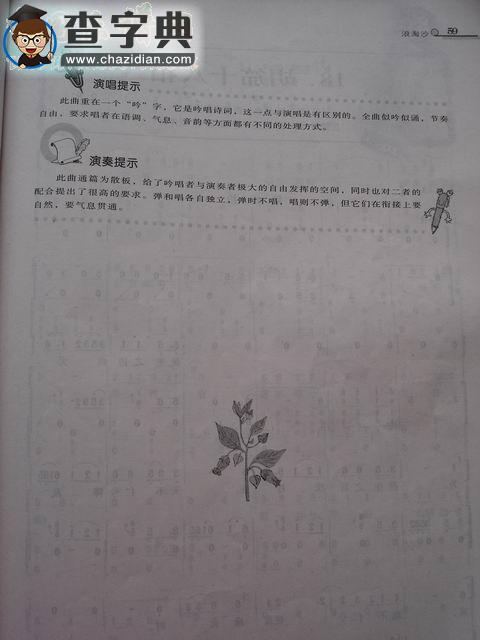 查字典
www.chazidian.com
浪淘沙 59
演唱提示
此曲重在一个“吟”字，它是吟唱诗词，这一点与演唱是有区别的。全曲似吟似诵，节奏
自由，要求唱者在语调、气息、音韵等方面都有不同的处理方式。
演奏提示
此曲通篇为散板，给了吟唱者与演奏者极大的自由发挥的空间，同时也对二者的
配合提出了很高的要求。弹和唱各自独立，弹时不唱，唱则不弹，但它们在衔接上要
自然，要气息贯通。